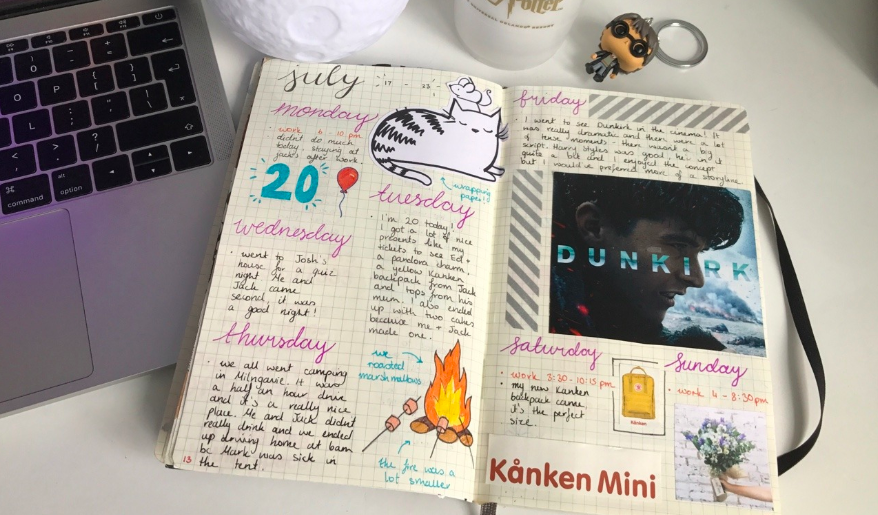 july 17 - 23
monday
• work 6 - 10 pm
didn't do much
today, staying at
Jack's after work.
20
wrapping
paper!!
tuesday
• I'm 20 today!
I got a lot of nice
presents like my
tickets to see Ed +
a pandora charm,
a yellow Kanken
backpack from Jack
and tops from his
mum. I also ended
up with two cakes
because me + Jack
made one.
wednesday
• went to Josh's
house for a quiz
night. Me and
Jack came
second, it was
a good night!
thursday
• we all went camping
in Milngavie. It was
a half an hour drive
and it's a really nice
place. Me and Jack didn't
really drink and we ended
up driving home at 6am
bc Mark was sick in
the tent.
we
roasted
marshmallows
the fire was a
lot smaller
13
friday
• I went to see Dunkirk in the cinema! It
was really dramatic and there were a lot
of tense moments - there wasn't a big
script. Harry Styles was good, he in it
quite a bit and I enjoyed the concept
but I would've preferred more of a storyline.
DUNKIRK
saturday
• work 3:30 - 10:15 pm
• my new Kanken
backpack came.
It's the perfect
size.
Kånken
sunday
• work 4 - 8:30pm
Kånken Mini
Potter
command
alt
option
O
P
L